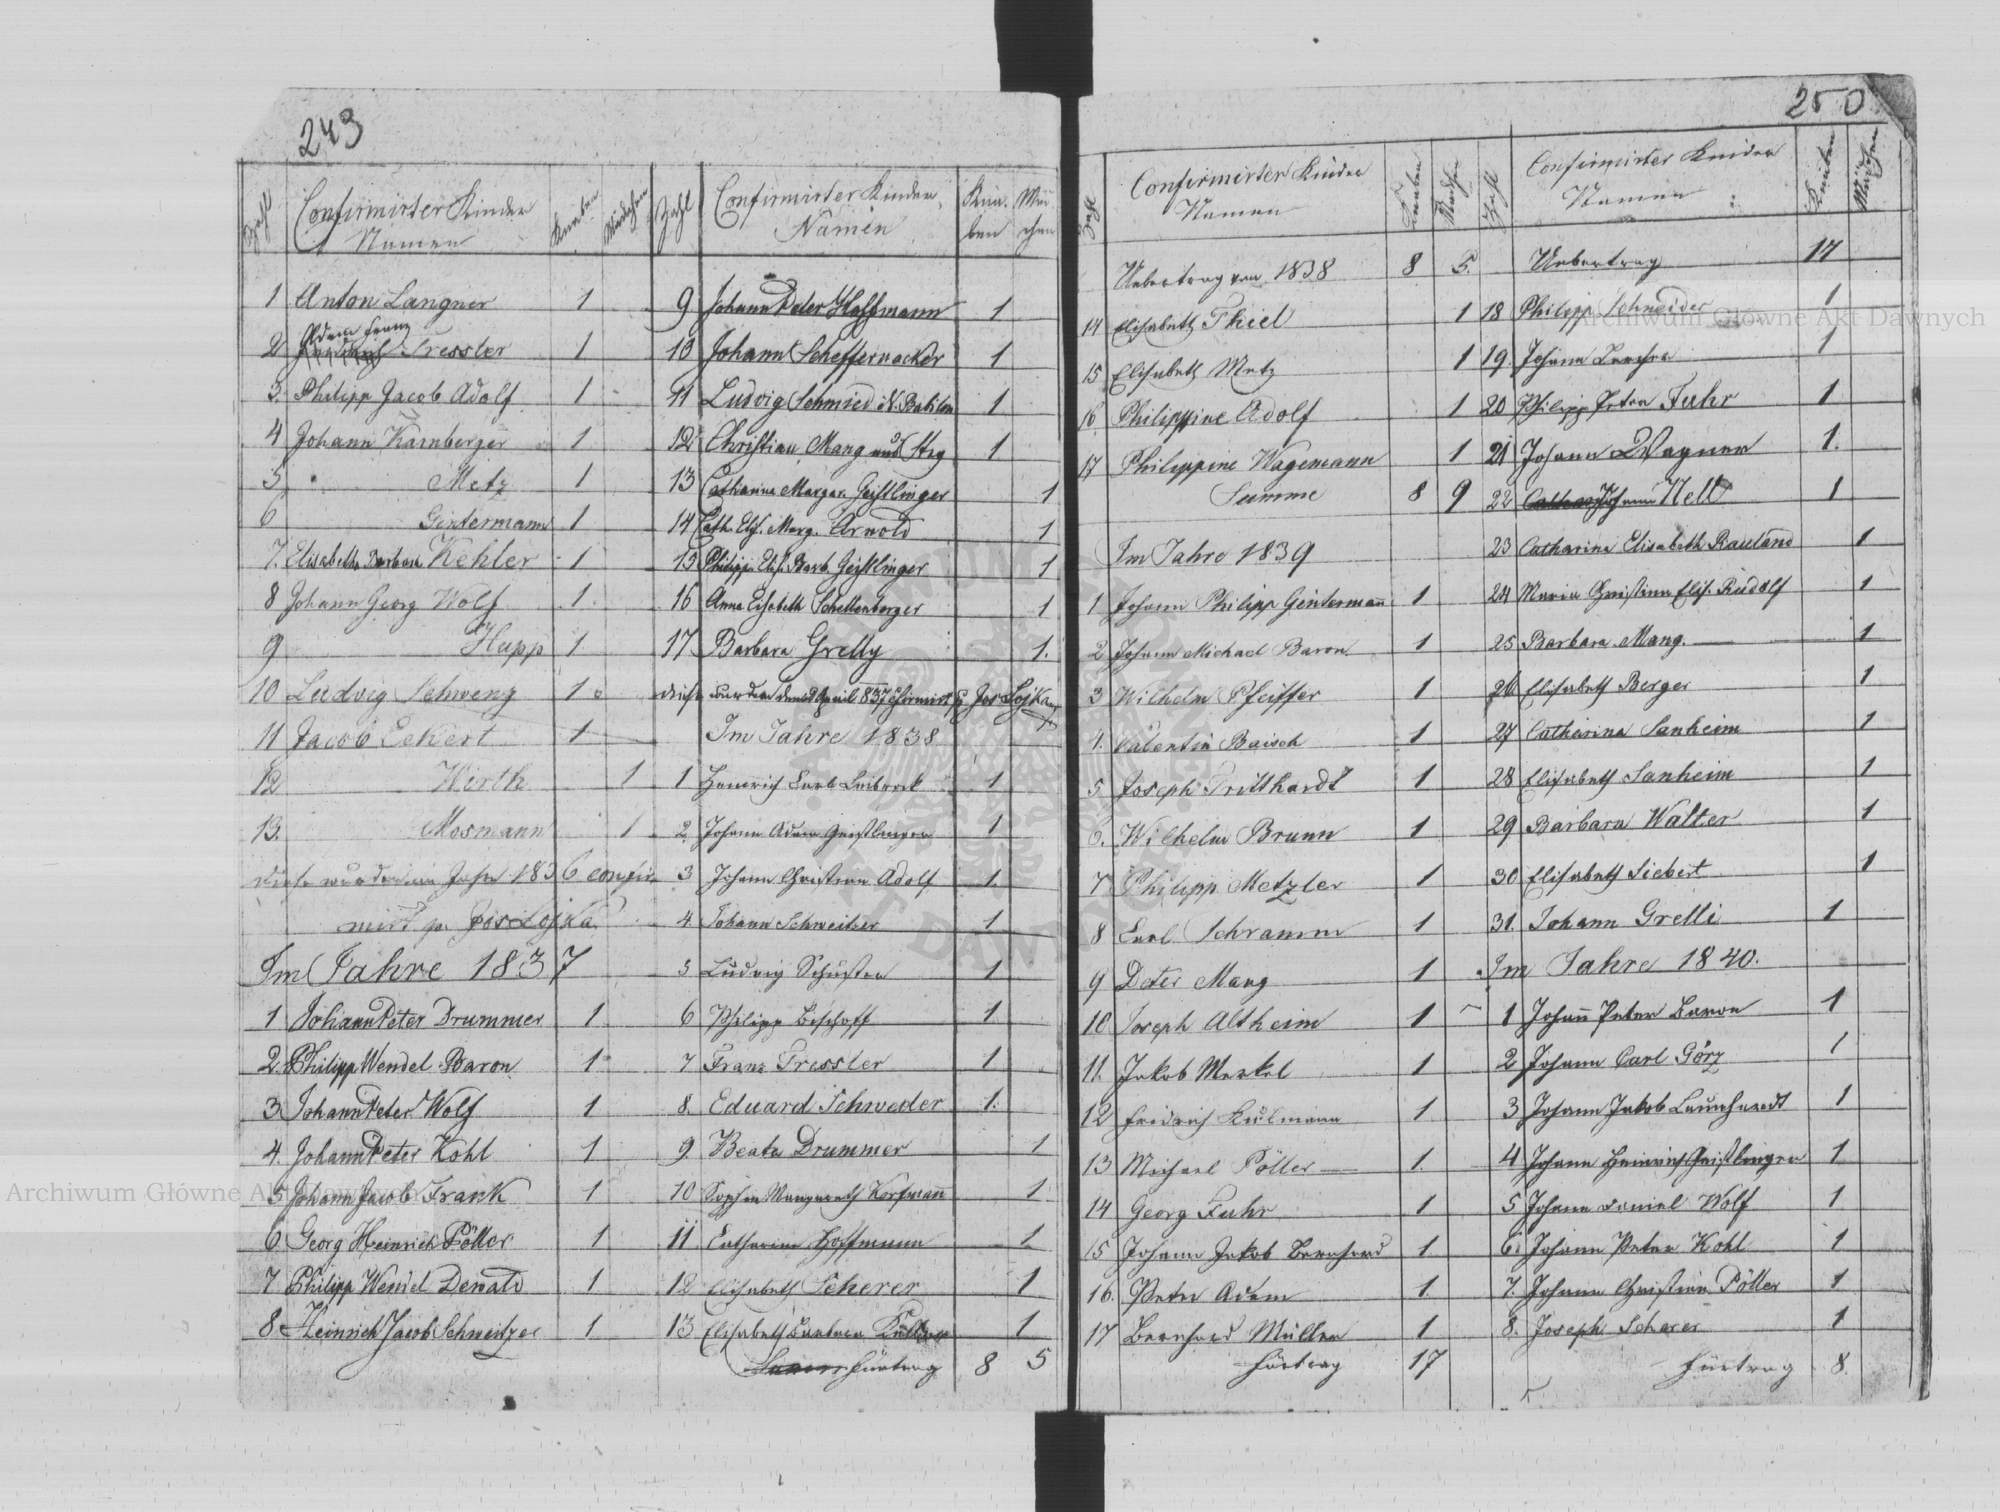 243
Zahl Confirmirter Kinder Namen Knaben Mädchen
1 Anton Langner 1
Adam Franz
2 Tressler 1
3. Philipp Jacob Adolf 1
4 Johann Karnberger 1
5 " Metz 1
6 Gintermann 1
7. Elisabetha Barbara Kehler 1
8 Johann Georg Wolf 1
9 Hupp 1
10 Ludvig Schweng 1
11 Jacob Eckert 1
12 Wirth 1
13. Mosmann 1
diese wurden im Jahr 1836 confir
mirt p. Jos Lojka
Im Jahre 1837
1 Johann Peter Drummer 1
2. Philipp Wendel Baron 1
3 Johann Peter Wolf 1
4. Johann Peter Kohl 1
5 Johann Jacob Frank 1
6 Georg Heinrich Pöller 1
7 Philipp Wendel Dewald 1
8 Heinrich Jacob Schweitzer 1
Zahl Confirmirter Kinder Namen Kna- ben Mäd- chen
9 Johann Peter Hoffmann 1
10 Johann Scheffernacker 1
11 Ludvig Schmied N. Babilon 1
12 Christian Mang aus Stry 1
13 Catharina Margar. Geistlinger 1
14 Cath. Elis. Marg. Arnold 1
15 Philipp. Elis. Barb. Geistlinger 1
16 Anna Elisabeth Schellenberger 1
17 Barbara Grelly 1.
diese wurden den April 837 confirmirt p. Jos Lojka
Im Jahre 1838
1 Heinrich Carl Leibrock 1
2. Johann Adam Geistlinger 1
3 Johann Christian Adolf 1.
4. Johann Schweitzer 1
5 Ludvig Schuster 1
6 Philipp Bischoff 1
7 Franz Tressler 1
8. Eduard Schweder 1.
9. Beata Drummer 1
10 Sophia Margareth Korfmann 1
11 Catharina Hoffmann 1.
12 Elisabeth Scherer 1
13 Elisabeth Barbara 1
Fürtrag 8 5
250
Zahl Confirmirter Kinder Namen Knaben Mädchen
Uebertrag von 1838 8 5.
14 Elisabeth Thiel 1
15 Elisabeth Metz 1
16 Philippine Adolf 1
17 Philippine Wagemann 1
Summe 8 9
Im Jahre 1839
1 Johann Philipp Gintermann 1
2 Johann Michael Baron 1
3 Wilhelm Pfeiffer 1
4. Valentin Baisch 1
5 Joseph Tritthardt 1
6. Wilhelm Brunn 1
7 Philipp Metzler 1
8 Carl Schramm 1
9 Peter Mang 1
10 Joseph Altheim 1
11. Jakob Merkel 1
12 Fridrich Kulmann 1
13 Michael Pöller 1.
14 Georg Fuhr 1
15 Johann Jakob Bernhard 1
16. Peter Adam 1.
17 Bernhard Müller 1
Fürtrag 17
Zahl Confirmirter Kinder Namen Knaben Mädchen
Uebertrag 17
18 Philipp Schneider 1
19. Johann 1
20 Philipp Peter Fuhr 1
21 Johann Wagner 1.
22 Johann Nell 1
23 Catharina Elisabeth Rauland 1
24 Maria Christina Elis. Rudolf 1
25 Barbara Mang. 1
26 Elisabeth Berger 1
27 Catharina Sanheim 1
28 Elisabeth Sanheim 1
29 Barbara Walter 1
30 Elisabeth Siebert 1
31. Johann Grelli 1
Im Jahre 1840.
1 Johann Peter Baron 1
2 Johann Carl Görz 1
3 Johann Jakob Launhardt 1
4 Johann Heinrich Geistlinger 1
5 Johann Daniel Wolf 1
6. Johann Peter Kohl 1
7. Johann Christian Pöller 1
8. Joseph Scherer 1
Fürtrag 8.
Archiwum Główne Akt Dawnych
Archiwum Główne Akt Dawnych